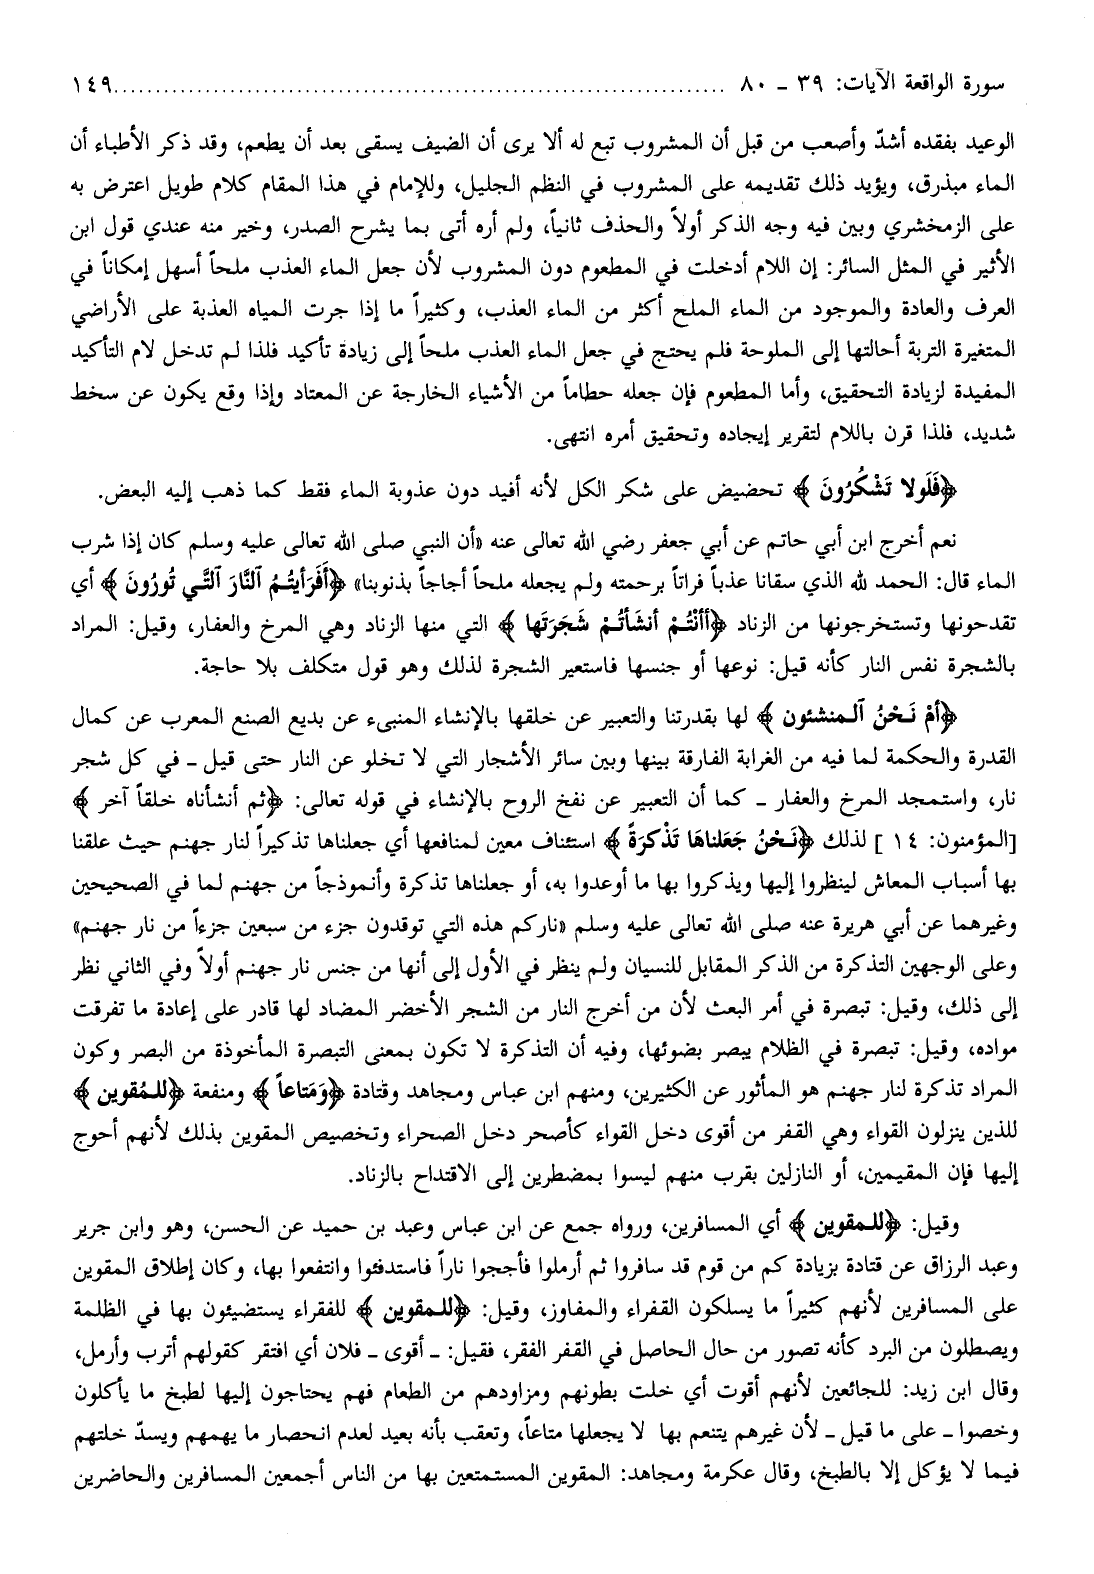 سورة الواقعة الآيات: ٣٩ ـ ٨٠ ........................................................................ ١٤٩
الوعيد بفقده أشدّ وأصعب من قبل أن المشروب تبع له ألا يرى أن الضيف يسقى بعد أن يطعم، وقد ذكر الأطباء أن
الماء مبذرق، ويؤيد ذلك تقديمه على المشروب في النظم الجليل، وللإمام في هذا المقام كلام طويل اعترض به
على الزمخشري وبين فيه وجه الذكر أولاً والحذف ثانياً، ولم أره أتى بما يشرح الصدر، وخير منه عندي قول ابن
الأثير في المثل السائر: إن اللام أدخلت في المطعوم دون المشروب لأن جعل الماء العذب ملحاً أسهل إمكاناً في
العرف والعادة والموجود من الماء الملح أكثر من الماء العذب، وكثيراً ما إذا جرت المياه العذبة على الأراضي
المتغيرة التربة أحالتها إلى الملوحة فلم يحتج في جعل الماء العذب ملحاً إلى زيادة تأكيد فلذا لم تدخل لام التأكيد
المفيدة لزيادة التحقيق، وأما المطعوم فإن جعله حطاماً من الأشياء الخارجة عن المعتاد وإذا وقع يكون عن سخط
شديد، فلذا قرن باللام لتقرير إيجاده وتحقيق أمره انتهى.
﴿فَلَولا تَشْكُرُونَ﴾ تحضيض على شكر الكل لأنه أفيد دون عذوبة الماء فقط كما ذهب إليه البعض.
نعم أخرج ابن أبي حاتم عن أبي جعفر رضي الله تعالى عنه «أن النبي صلى الله تعالى عليه وسلم كان إذا شرب
الماء قال: الحمد لله الذي سقانا عذباً فراتاً برحمته ولم يجعله ملحاً أجاجاً بذنوبنا» ﴿أَفَرَأَيتُـمُ ٱلنَّارَ ٱلتَّـي تُورُونَ﴾ أي
تقدحونها وتستخرجونها من الزناد ﴿أَأَنْتُـمْ أَنشَأتُـمْ شَجَرَتَها﴾ التي منها الزناد وهي المرخ والعفار، وقيل: المراد
بالشجرة نفس النار كأنه قيل: نوعها أو جنسها فاستعير الشجرة لذلك وهو قول متكلف بلا حاجة.
﴿أَمْ نَـحْنُ ٱلـمنشئون﴾ لها بقدرتنا والتعبير عن خلقها بالإنشاء المنبىء عن بديع الصنع المعرب عن كمال
القدرة والحكمة لما فيه من الغرابة الفارقة بينها وبين سائر الأشجار التي لا تخلو عن النار حتى قيل ـ في كل شجر
نار، واستمجد المرخ والعفار ـ كما أن التعبير عن نفخ الروح بالإنشاء في قوله تعالى: ﴿ثم أنشأناه خلقاً آخر﴾
[المؤمنون: ١٤] لذلك ﴿نَـحْنُ جَعَلناهَا تَذْكِرَةً﴾ استئناف معين لمنافعها أي جعلناها تذكيراً لنار جهنم حيث علقنا
بها أسباب المعاش لينظروا إليها ويذكروا بها ما أوعدوا به، أو جعلناها تذكرة وأنموذجاً من جهنم لما في الصحيحين
وغيرهما عن أبي هريرة عنه صلى الله تعالى عليه وسلم «ناركم هذه التي توقدون جزء من سبعين جزءاً من نار جهنم»
وعلى الوجهين التذكرة من الذكر المقابل للنسيان ولم ينظر في الأول إلى أنها من جنس نار جهنم أولاً وفي الثاني نظر
إلى ذلك، وقيل: تبصرة في أمر البعث لأن من أخرج النار من الشجر الأخضر المضاد لها قادر على إعادة ما تفرقت
مواده، وقيل: تبصرة في الظلام يبصر بضوئها، وفيه أن التذكرة لا تكون بمعنى التبصرة المأخوذة من البصر وكون
المراد تذكرة لنار جهنم هو المأثور عن الكثيرين، ومنهم ابن عباس ومجاهد وقتادة ﴿وَمَتاعاً﴾ ومنفعة ﴿للـمُقوين﴾
للذين ينزلون القواء وهي القفر من أقوى دخل القواء كأصحر دخل الصحراء وتخصيص المقوين بذلك لأنهم أحوج
إليها فإن المقيمين، أو النازلين بقرب منهم ليسوا بمضطرين إلى الاقتداح بالزناد.
وقيل: ﴿للـمقوين﴾ أي المسافرين، ورواه جمع عن ابن عباس وعبد بن حميد عن الحسن، وهو وابن جرير
وعبد الرزاق عن قتادة بزيادة كم من قوم قد سافروا ثم أرملوا فأججوا ناراً فاستدفئوا وانتفعوا بها، وكان إطلاق المقوين
على المسافرين لأنهم كثيراً ما يسلكون القفراء والمفاوز، وقيل: ﴿للمقوين﴾ للفقراء يستضيئون بها في الظلمة
ويصطلون من البرد كأنه تصور من حال الحاصل في القفر الفقر، فقيل: ـ أقوى ـ فلان أي افتقر كقولهم أترب وأرمل،
وقال ابن زيد: للجائعين لأنهم أقوت أي خلت بطونهم ومزاودهم من الطعام فهم يحتاجون إليها لطبخ ما يأكلون
وخصوا ـ على ما قيل ـ لأن غيرهم يتنعم بها لا يجعلها متاعاً، وتعقب بأنه بعيد لعدم انحصار ما يهمهم ويسدّ خلتهم
فيما لا يؤكل إلا بالطبخ، وقال عكرمة ومجاهد: المقوين المستمتعين بها من الناس أجمعين المسافرين والحاضرين